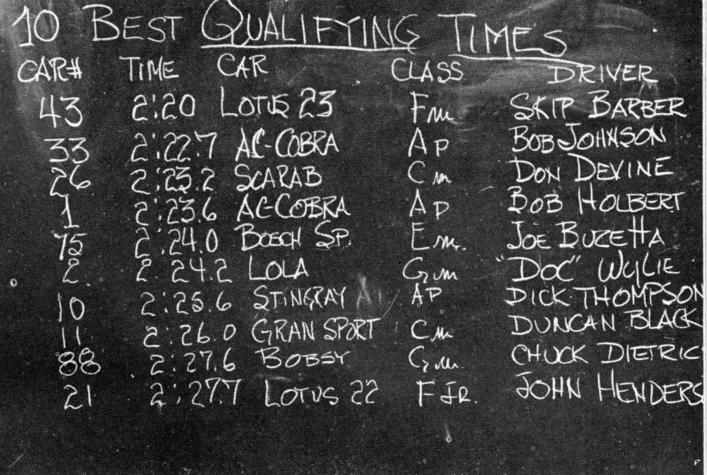 10 BEST QUALIFYING TIMES
CAR# TIME CAR CLASS DRIVER
43 2:20 LOTUS 23 Fm SKIP BARBER
33 2:22.7 AC-COBRA AP BOB JOHNSON
26 2:23.2 SCARAB Cm DON DEVINE
1 2:23.6 AC-COBRA AP BOB HOLBERT
75 2:24.0 BOSCH SP. Em. JOE BUZETTA
2. 2 24.2 LOLA Gm "DOC" WYLIE
10 2:25.6 STINGRAY AP DICK THOMPSON
11 2:26.0 GRAN SPORT Cm DUNCAN BLACK
88 2:27.6 BOBSY Gm. CHUCK DIETRIC
21 2:27.7 LOTUS 22 F JR. JOHN HENDERS